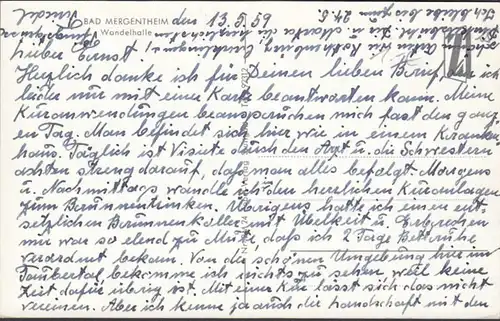 BAD MERGENTHEIM den 13.5.59
Wandelhalle
Lieber Ernst!
Herzlich danke ich für Deinen lieben Brief, den ich
leider nur mit einer Karte beantworten kann. Meine
Kuranwendungen beanspruchen mich fast den ganz-
en Tag. Man befindet sich hier wie in einem Kranken-
haus. Täglich ist Visite durch den Arzt u. die Schwestern
achten streng darauf, daß man alles befolgt. Morgens
u. Nachmittags wandle ich in den herrlichen Kuranlagen
zum Brunnentrinken. Übrigens hatte ich einen ent-
setzlichen Brunnenkoller mit Übelkeit u. Erbrechen
mir war so elend zu Mute, daß ich 2 Tage Bettruhe
verordnet bekam. Von der schönen Umgebung hier im
Taubertal bekomme ich nichts zu sehen, weil keine
Zeit dafür übrig ist. Mit einer Kur lässt sich das nicht
vereinen. Aber ich kenne ja auch die Landschaft mit den